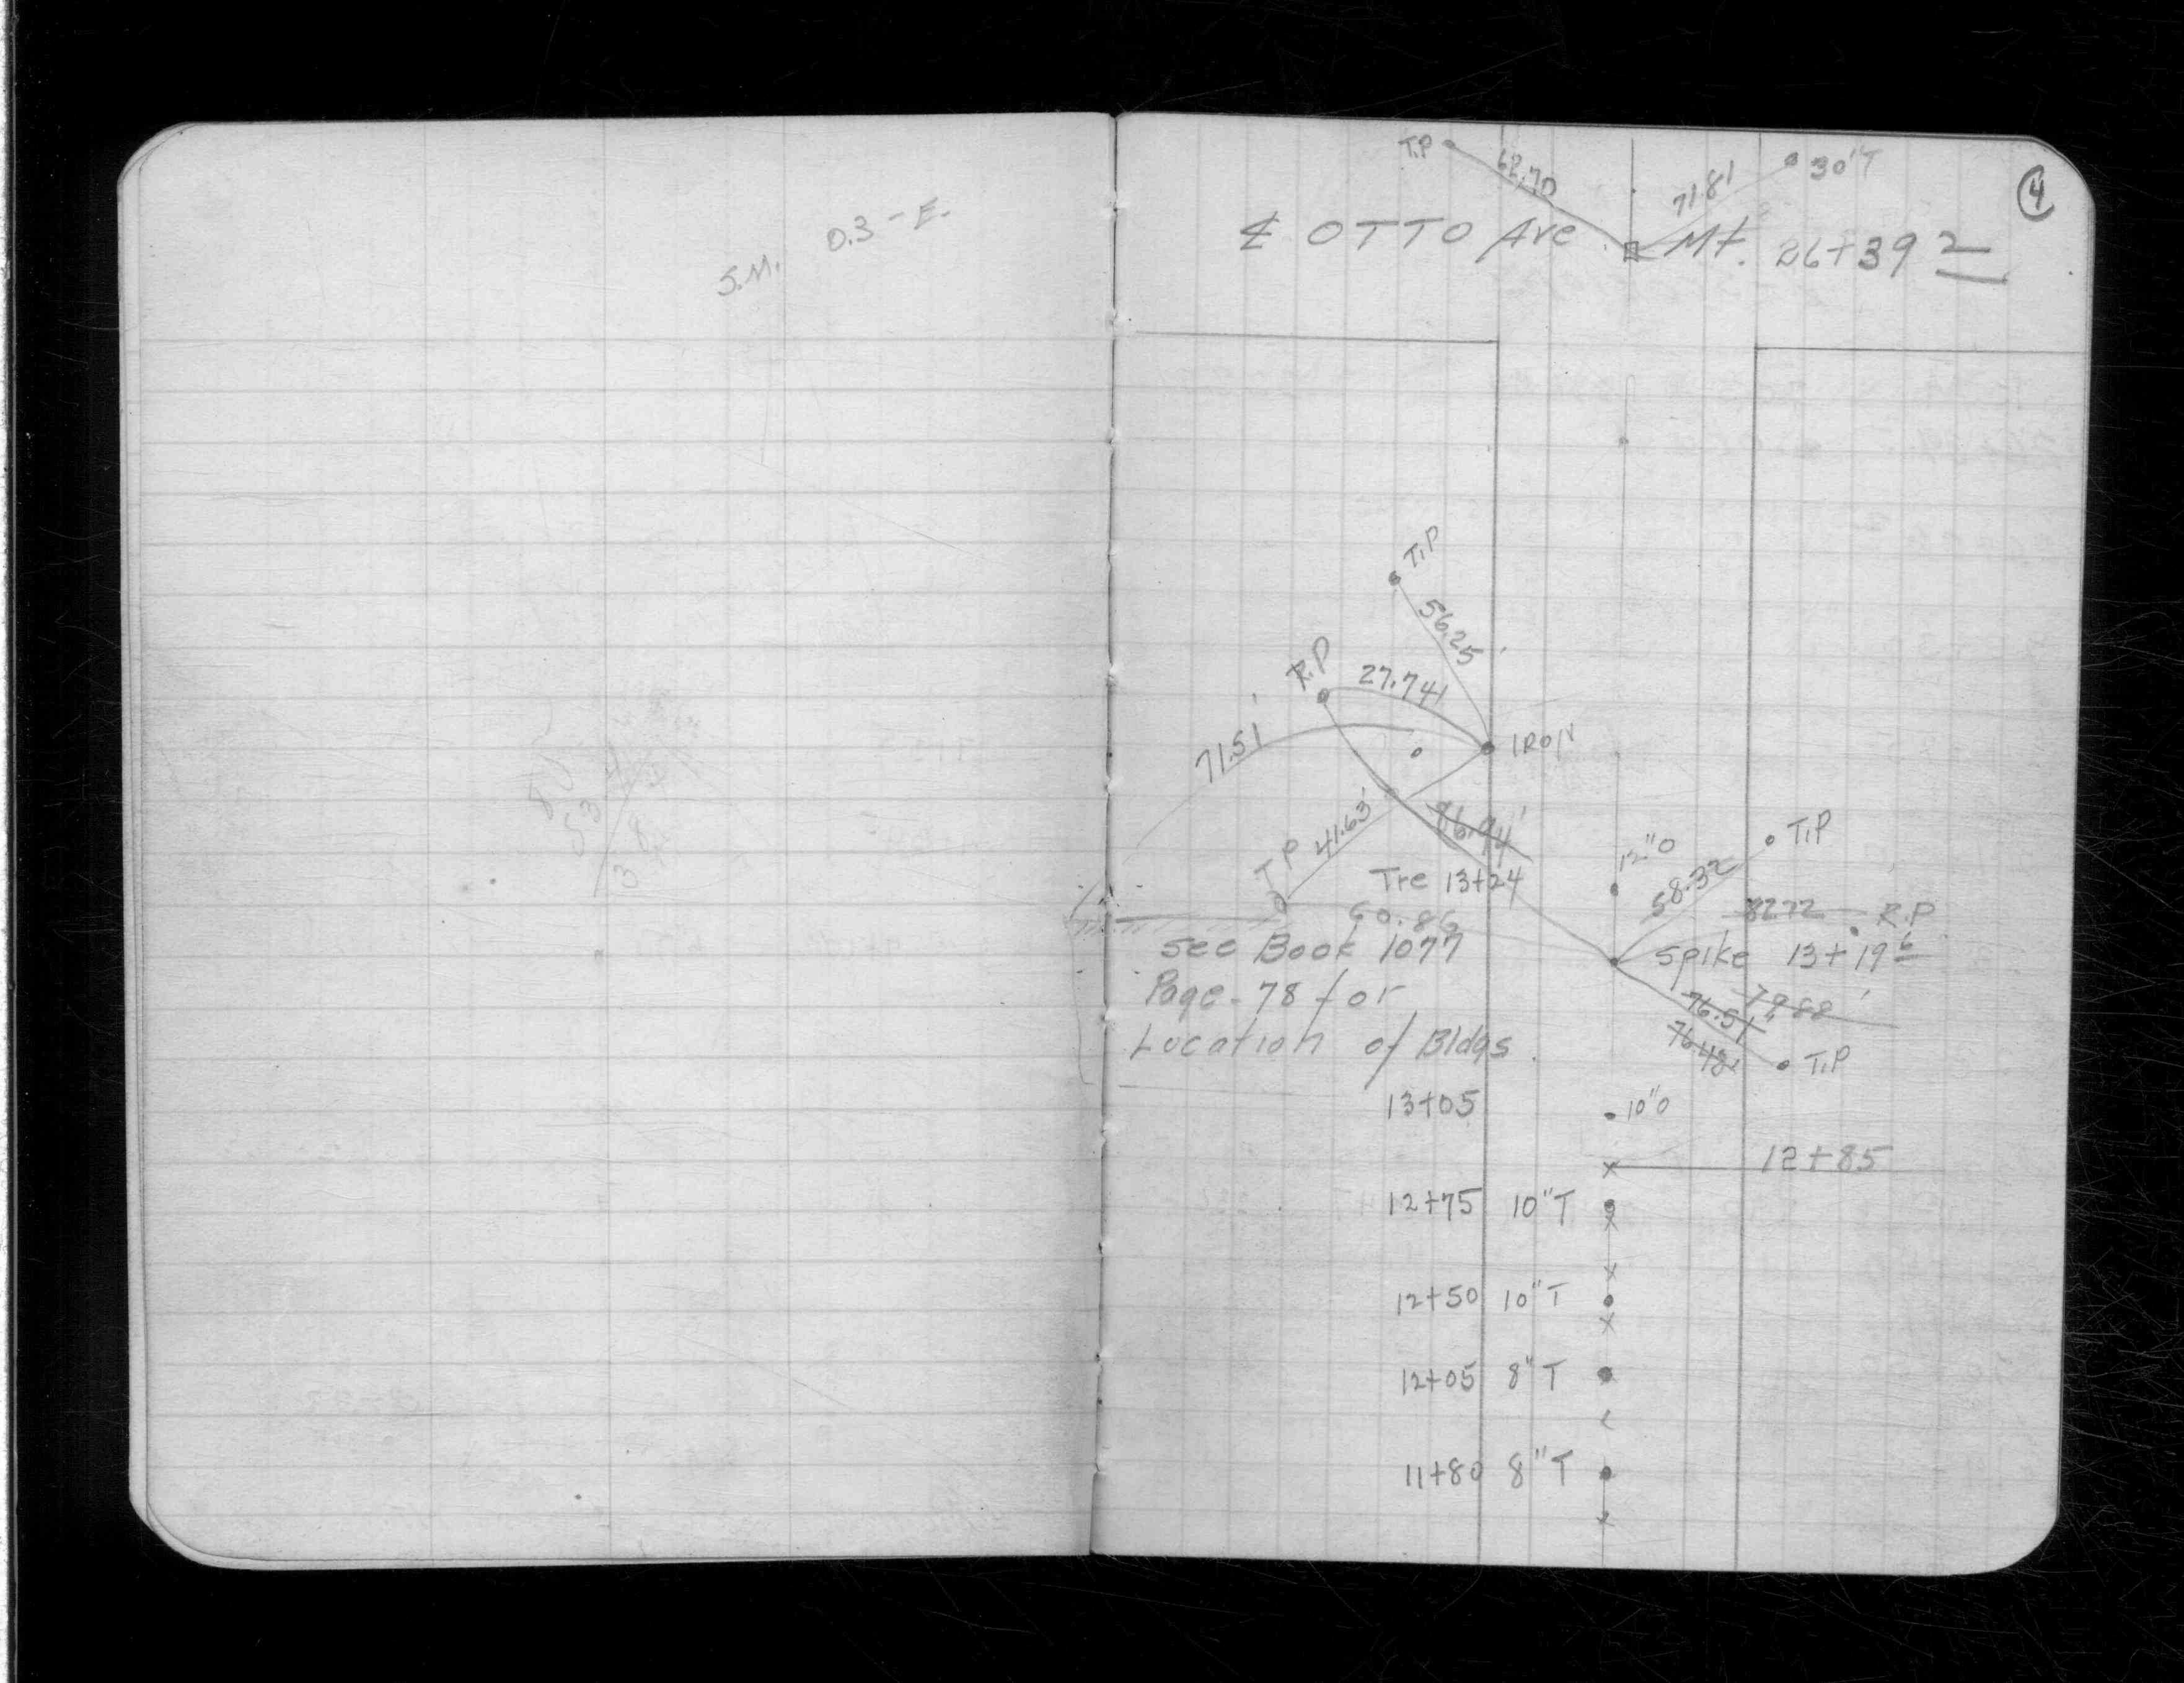 S.M. 0.3 - E.
4
T.P 62.70 71.81 30"T
℄ OTTO Ave Mt. 26+39 2
T.P
56.25'
R.P 27.741
71.51'
IRON
T.P 41.63' 86.94'
12"O
58.32 T.P
Tre 13+24
60.86
8272 R.P
See Book 1077
Spike 13+19 6
Page - 78 for
79.88'
76.51'
Location of Bldgs.
T.P
13+05 10"O
12+85
12+75 10"T
12+50 10"T
12+05 8"T
11+80 8"T